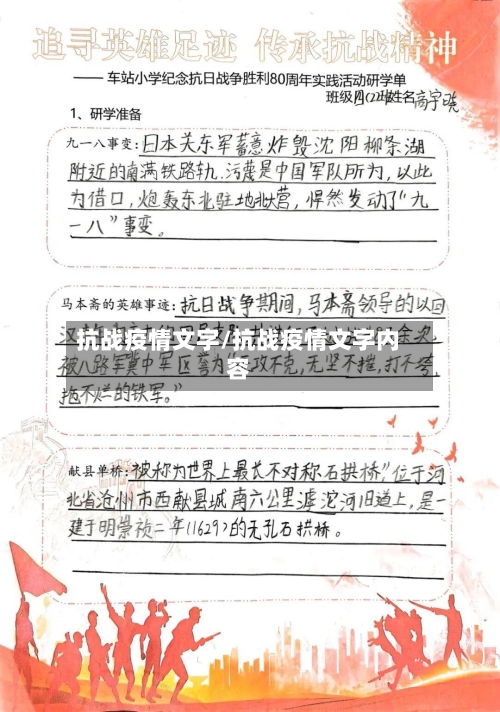 追寻英雄足迹 传承抗战精神
—— 车站小学纪念抗日战争胜利80周年实践活动研学单
班级四(22)班姓名高宇晓
1、研学准备
九一八事变：日本关东军蓄意炸毁沈阳柳条湖
附近的南满铁路轨，污蔑是中国军队所为，以此
为借口，炮轰东北驻地北大营，悍然发动了“九
一八”事变。
马本斋的英雄事迹：抗日战争期间，马本斋领导的以回
抗战疫情文字/抗战疫情文字内
容
被八路军冀中军区誉为“攻不克，无坚不摧，打不垮，
拖不烂的铁军。”
献县单桥：被称为世界上最长不对称石拱桥，位于河
北省沧州市西献县城南六公里滹沱河旧道上，是一
建于明崇祯二年(1629)的无孔石拱桥。